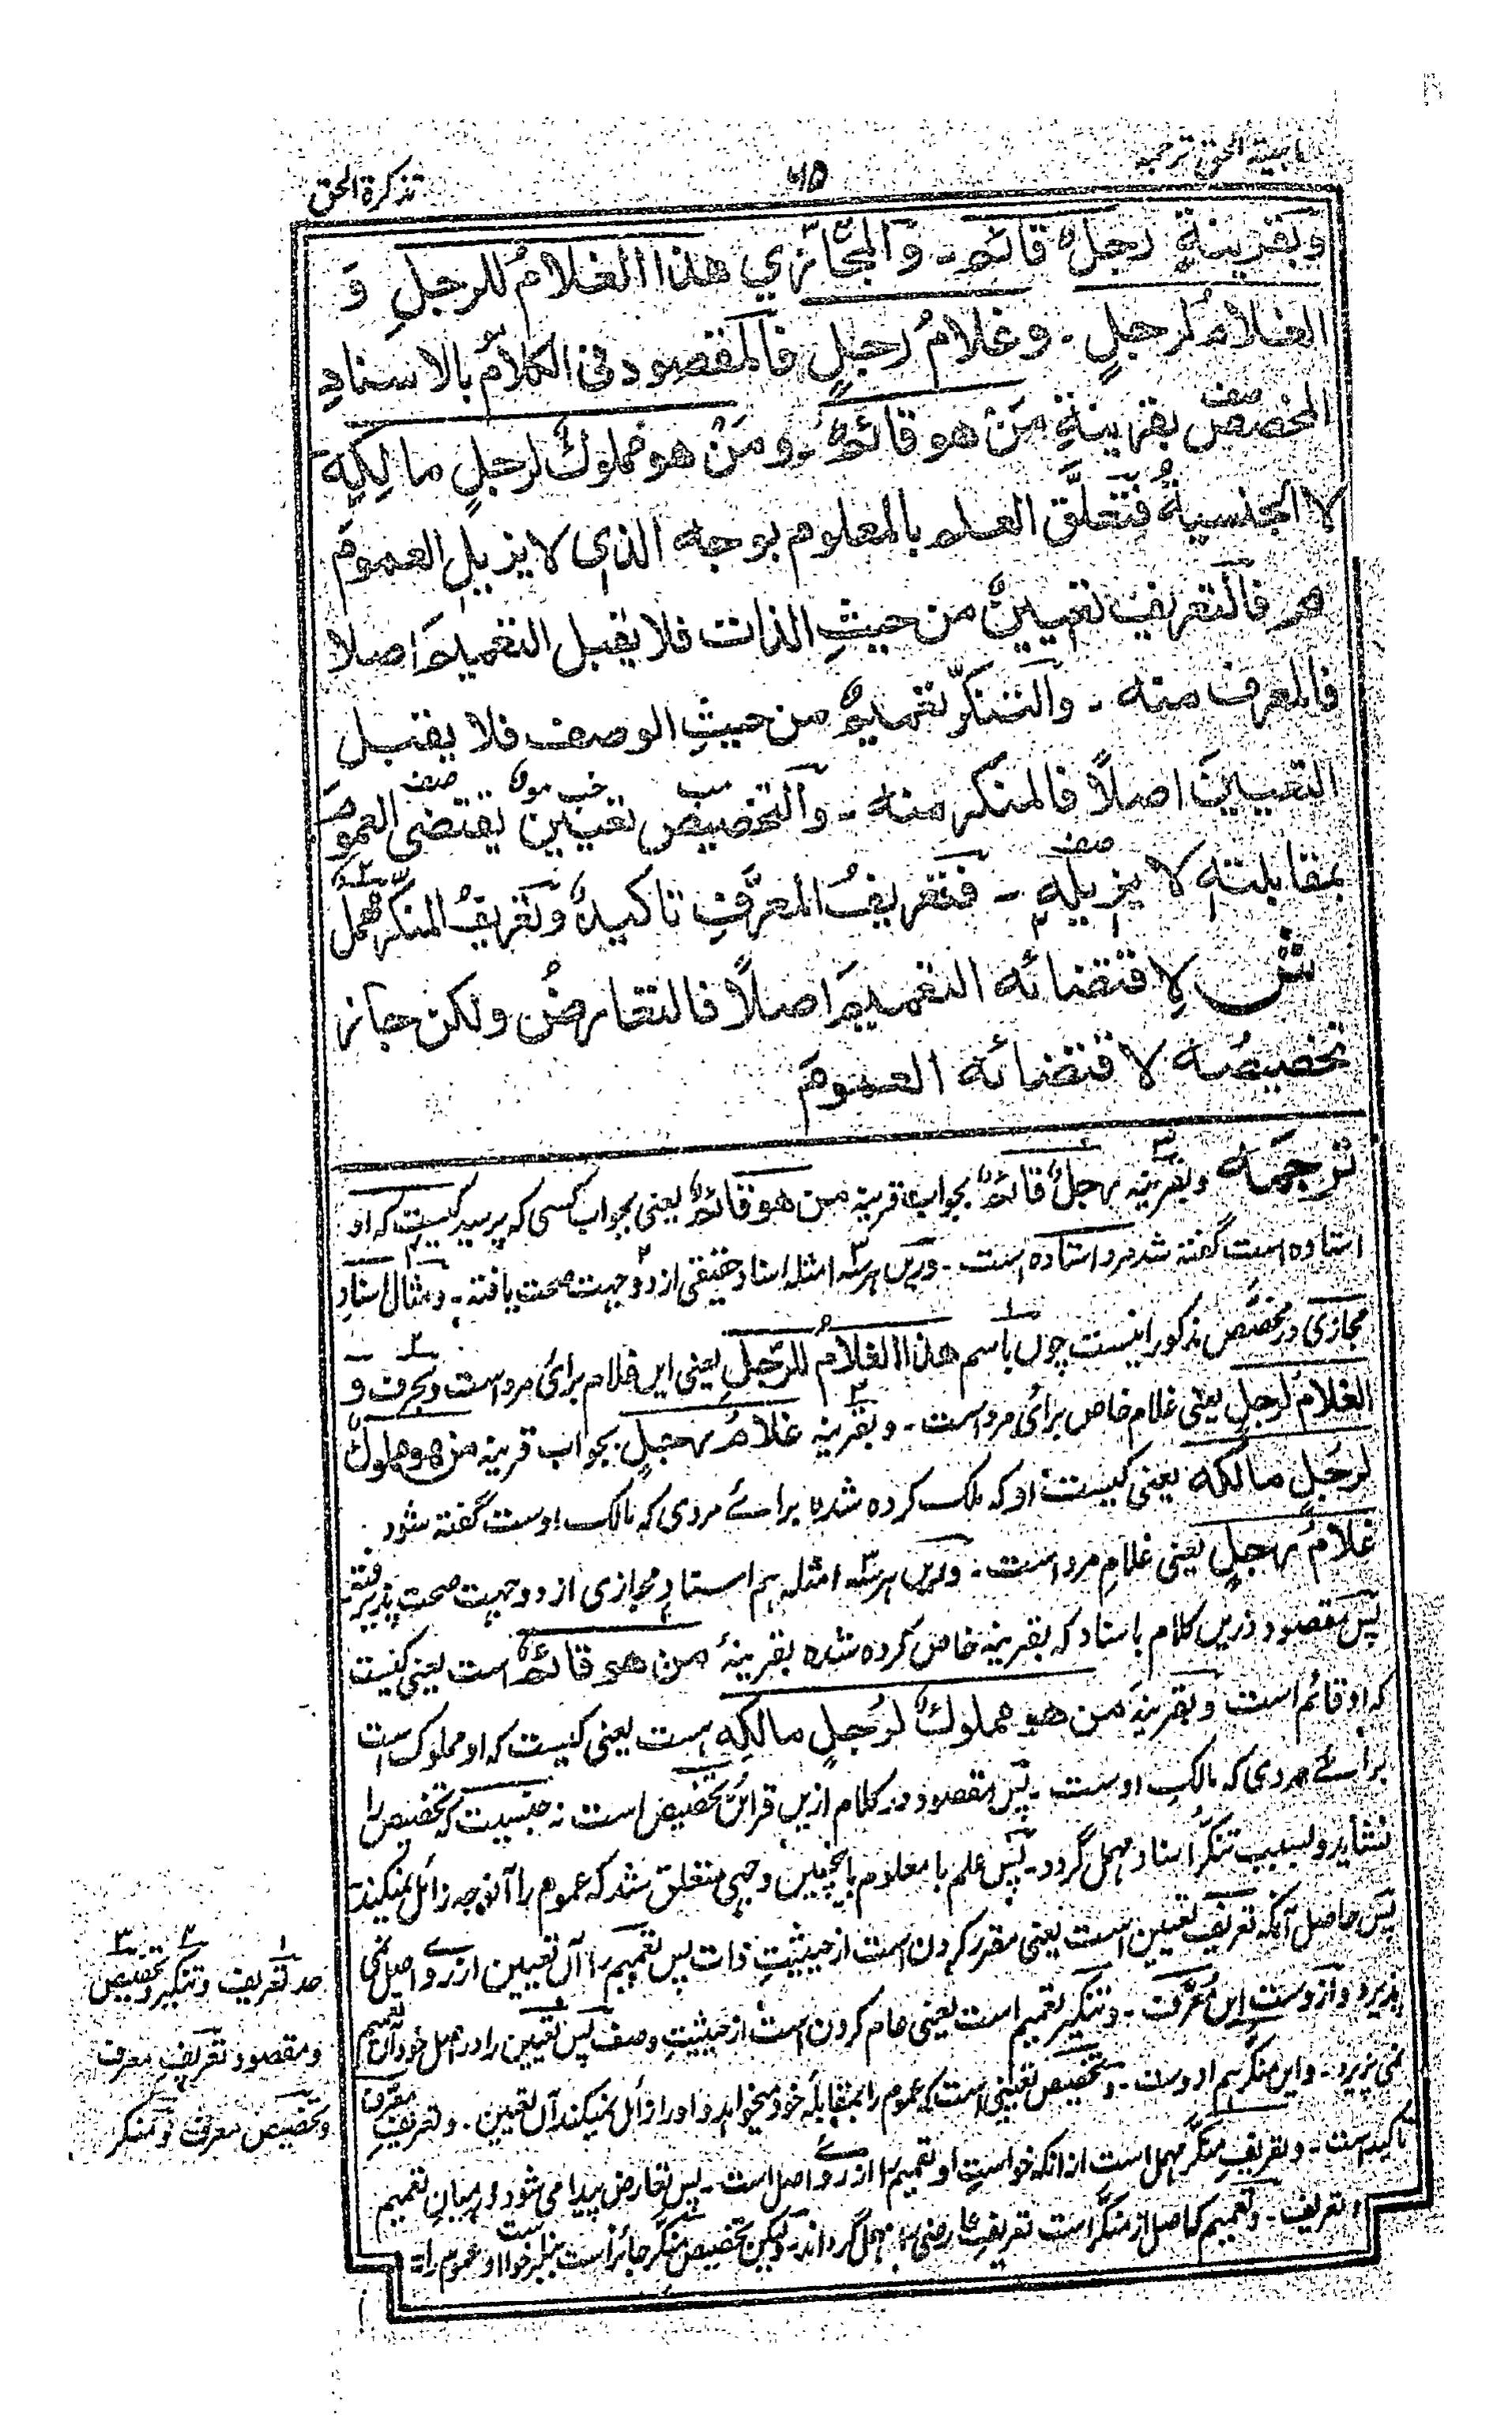 تذکرة الحق
۶۵
ترجمه
وبقرينةٍ رجلٌ قائمٌ ۔ والمجازي هذا الغلامُ للرجلِ وَ
الغلامُ لرجلٍ ۔ وغلامُ رجلٍ فالمقصود فى الكلام بالاسنادِ
المخصصُ بقرينةِ مَنْ هو قائمٌ ۔ ومَنْ هو مملوكٌ لرجلٍ مالِكِه
لا الجنسيةُ فتعلَّق العلم بالمعلوم بوجه الذي لا يزيل العمومَ
هو فالتعريف تعيينٌ من حيثِ الذات فلا يقبل التعميمَ اصلا
فالمعرف منه ۔ والتنكّر تعميمٌ من حيثِ الوصف فلا يقبل
التعيينَ اصلاً فالمنكر منه ۔ والتخصيص تعيينٌ يقتضى العموم
بمقابلته لا يزيله ۔ فتعريفُ المعرَّفِ تاكيدٌ وتعريفُ المنكر مهمل
ش لِاقتضائه التعميمَ اصلاً فالتعارضُ ولكن جاز
تخصيصُه لاقتضائه العمومَ
ترجمه وبقرینه رجلٌ قائمٌ بجواب قرینه من هو قائمٌ یعنی بجواب کسی که پرسید کیست که او
استاده است گفته شد مرد استاده است ۔ ودرین هرسه امثله اسناد حقیقی از دو جهت صحت یافته ۔ ومثال اسنادِ
مجازی در مخصَّص مذکور اینست چوں باسم هذا الغلامُ للرّجلِ یعنی این غلام برای مرد است وبحرف و
الغلامُ لرجلٍ یعنی غلام خاص برای مرد است ۔ وبقرینه غلامُ رجلٍ بجواب قرینه من هو مملوكٌ
لرجلٍ مالکه یعنی کیست او که ملک کرده شده برائے مردی که مالک اوست گفته شود
غلامُ رجلٍ یعنی غلامِ مرد است ۔ ودرین هرسه امثله هم اسنادِ مجازی از دو جهت صحت پذیرفته
پس مقصود درین کلام باسناد که بقرینه خاص کرده شده بقرینهٔ من هو قائمٌ است یعنی کیست
که او قائم است وبقرینهٔ من هو مملوكٌ لرجلٍ مالکِه هست یعنی کیست که او مملوک است
برائے مردی که مالکِ اوست ۔ پس مقصود در کلام ازین قرائن تخصیص است نه جنسیت که تخصیص را
نشاید وبسبب تنکّر اسناد مهمل گردد ۔ پس علم با معلوم باینچنین وجهی متعلق شد که عموم را آنوجه زائل نمیکند
پس حاصل آنکه تعریف تعیین است یعنی مقرر کردن است از حیثیتِ ذات پس تعمیم را آن تعیین از روے اصل نمی
پذیرد واز وست این مُعَرَّف ۔ وتنکیر تعمیم است یعنی عام کردن است از حیثیتِ وصف پس تعیین را در اصل خود آن تعمیم
نمی پزیرد ۔ واین منکّر هم از وست ۔ وتخصیص تعیینی است که عموم را بمقابله خود میخواهد واو را زائل نمیکند آن تعیین ۔ وتعریفِ معرَّف
تاکید است ۔ وتعریفِ منکَّر مهمل است از آنکه خواستِ او تعمیم را از روے اصل است ۔ پس تعارض پیدا می شود در میان تعمیم
وتعریف ۔ وتعمیم که اصل از منکَّر است تعریفِ عارضی را مهمل گرداند ۔ ولیکن تخصیص منکَّر جائز است بنابر خواست او عموم را ۔
حد تعریف وتنکیر وتخصیص
ومقصود تعریفِ معرف
وتخصیص معرف ومنکر